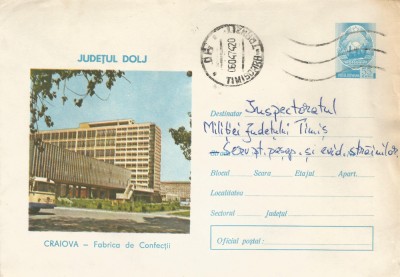 JUDEȚUL DOLJ
TIMIȘOARA
060474 20
Destinatar Inspectoratul
Miliției Județului Timiș
Serv. șt. pașap. și evid. străinilor
Blocul Scara Etajul Apart.
Localitatea
Sectorul Județul
Oficiul poștal:
CRAIOVA – Fabrica de Confecții